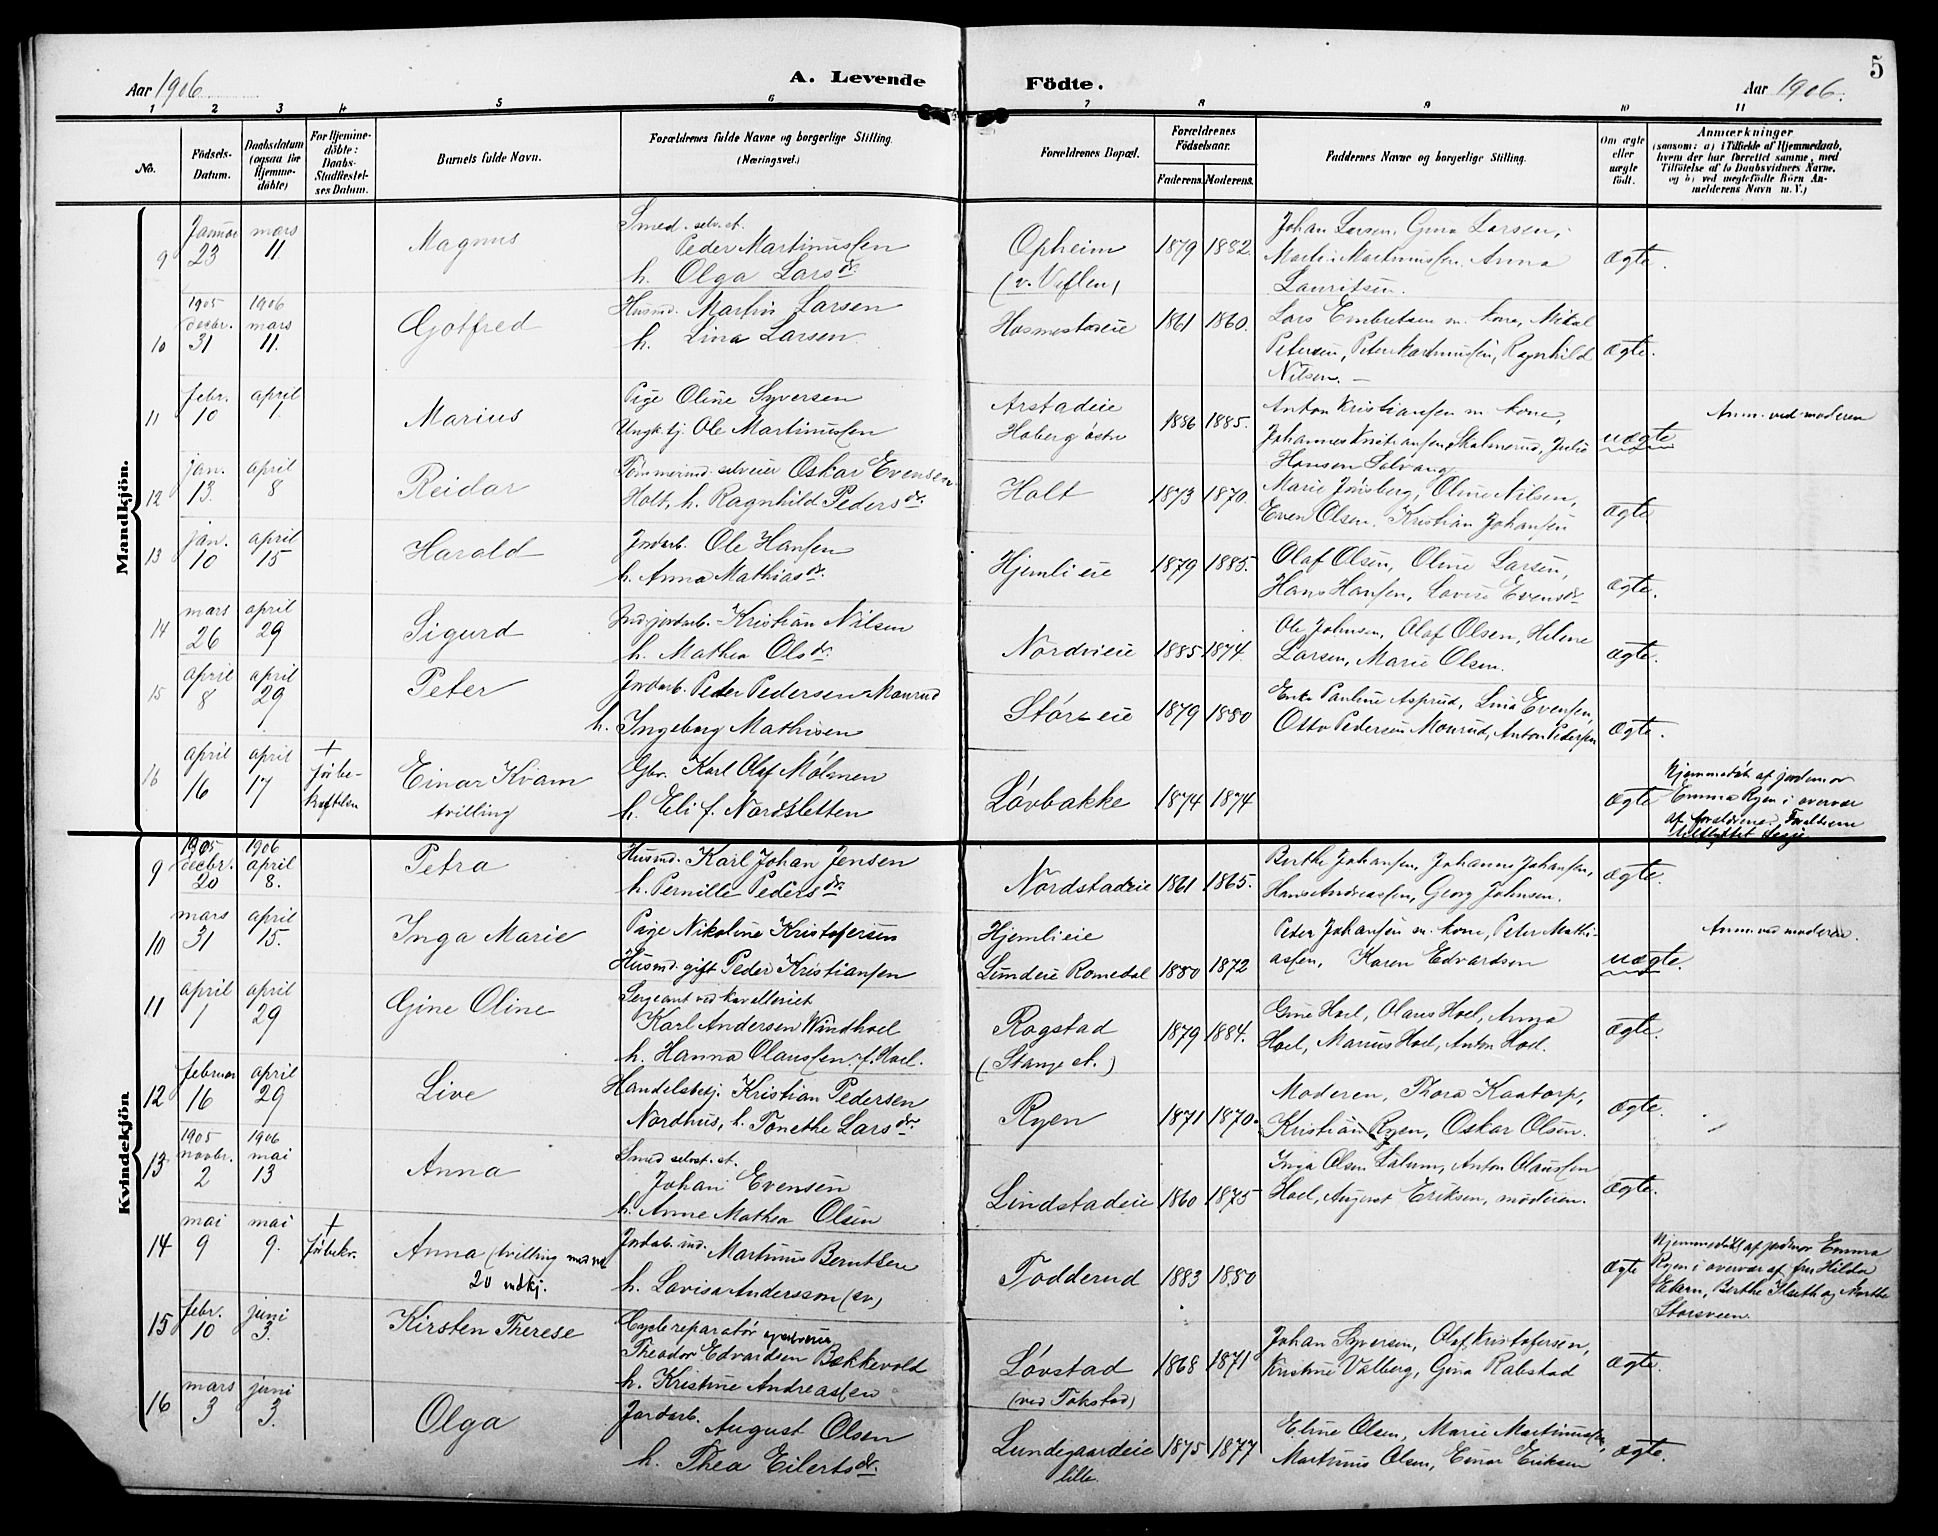 5
Aar 1906
A. Levende
Födte.
Aar 1906.
1 2 3 4 5 6 7 8 9 10 11
No.
Födsels-
Datum.
Daabsdatum
(ogsaa för
Hjemme-
döbte)
For Hjemme-
döbte:
Daabs-
Stadfæstel-
ses Datum.
Barnets fulde Navn.
Forældrenes fulde Navne og borgerlige Stilling.
(Næringsvei.)
Forældrenes Bopæl.
Forældrenes
Födselsaar.
Faderens. Moderens.
Faddernes Navne og borgerlige Stilling.
Om ægte
eller
uægte
födt.
Anmærkninger
(saasom: a) i Tilfælde af Hjemmedaab,
hvem der har forrettet samme, med
Tilföielse af to Daabsvidners Navne,
og b) ved uægtefödte Börn An-
melderens Navn m. V.)
Mandkjön.
9 Januar 23 mars 11. Magnus
Smed. selvst.
Peder Martinussen
h. Olga Larsdr.
Opheim
(v. Veflen)
1879 1882.
Johan Larsen, Gina Larsen,
Martin Martinussen, Anna
Lauritsen.
ægte.
10 1905 decbr. 31 1906 mars 11. Gotfred
Husmd. Martin Larsen
h. Lina Larsen.
1861 1860.
Lars Embretsen m. kone, Mikal
Petersen, Peter Martinussen, Ragnhild
Nilsen. —
ægte.
11 febr. 10 april 1 Marius
Pige Oline Syversen
Ungk. tj. Ole Martinussen
Arstadeie
Hoberg østre
1886 1885.
Anton Kristiansen m. kone,
Johannes Kristiansen Skalmerud, Julie
Hansen Solvang
uægte
Anm. ved moderen
12 jan. 13. april 8 Reidar
Tømmermd. selveier Oskar Evensen
Holt, h. Ragnhild Pedersdr.
Holt
1873 1870.
Marie Jønsberg, Oline Nilsen,
Even Olsen. Kristian Johansen
ægte
13 jan. 10 april 15 Harald
Jordarb. Ole Hansen
h. Anna Mathiasdr.
Hjemlieie
1879 1885.
Olaf Olsen, Oline Larsen,
Hans Hansen, Lovise Evensdr
ægte.
14 mars 26 april 29 Sigurd
Ind. jordarb. Kristian Nilsen
h. Mathea Olsdr.
Nordvieie
1885 1874.
Ole Johnsen, Olaf Olsen, Helene
Larsen, Marie Olsen.
ægte.
15 april 8 april 29 Peter
Jordarb. Peder Pedersen Monrud
h. Ingeborg Mathisen
Størseie
1879 1880
Enke Pauline Asprud, Lina Evensen,
Otto Pedersen Monrud, Anton Pedersen
ægte.
16 april 16 april 17 + før be-
kræftelsen
Einar Kvam
tvilling
Gbr. Karl Olaf Mølmen
h. Eli f. Nordsletten
Løvbakke
1874 1874
ægte
Hjemmedøbt af jordemor
Emma Ryen i overvær
af forældrene.
Kvindekjön
9 1905 decbr. 20 1906 april 8. Petra
Husmd. Karl Johan Jensen
h. Pernille Pedersdr.
Nordstadeie
1861 1865.
Berthe Johansen, Johanne Johansen,
Hans Andreassen, Georg Johnsen.
ægte.
10 mars 31 april 15. Inga Marie
Pige Nikoline Kristofersen
Husmd. gift Peder Kristiansen
Hjemlieie
Lundeie Romedal
1880 1872
Peder Johansen m. kone, Peter Mathi-
assen, Karen Edvardsen
uægte.
Anm. ved moderen.
11 april 1 april 29 Gine Oline
Sergeant ved kavalleriet
Karl Andersen Windhoel
h. Hanna Olaussen f. Hoel.
Rogstad
(Stange st.)
1879 1884.
Gine Hoel, Olaus Hoel, Anna
Hoel, Marius Hoel, Anton Hoel.
ægte.
12 februar 16 april 29 Live
Handelsbestj. Kristian Pedersen
Nordhus, h. Tonethe Larsdr
Ryen
1871 1870.
Moderen, Thora Kaatorp,
Kristian Ryen, Oskar Olsen.
ægte.
13 1905 novbr. 2 1906 mai 13 Anna
Smed selvst.
Johan Evensen
h. Anne Mathea Olsen
Lindstadeie
1860 1875
Inga Olsen Salum, Anton Olaussen
Hoel, August Eriksen, moderen.
ægte.
14 mai 9 mai 9. + før bekr.
Anna (tvilling med nr
20 mdkj.
Jordarb. ind. Martinus Berntsen
h. Lovisa Andersson (sv)
Todderud
1883 1880
ægte
Hjemmedøbt af jordmor Emma
Ryen i overvær af fru Hilda
Ekern, Berthe Kleth og Marthe
Storsveen.
15 febr. 10 juni 3. Kirsten Therese
Cyclereparatør
Theodor Edvardsen Bekkevold
h. Kristine Andreassen
Løvstad
(ved Tokstad)
1868 1871
Johan Syversen, Olaf Kristofersen,
Kristine Valberg, Gina Rabstad
ægte.
16 mars 3 juni 3. Olga
Jordarb. August Olsen
h. Thea Eilertsdr.
Lundegaardeie
lille.
1875 1877
Eline Olsen, Marie Martinussen,
Martinus Olsen, Einar Eriksen
ægte.